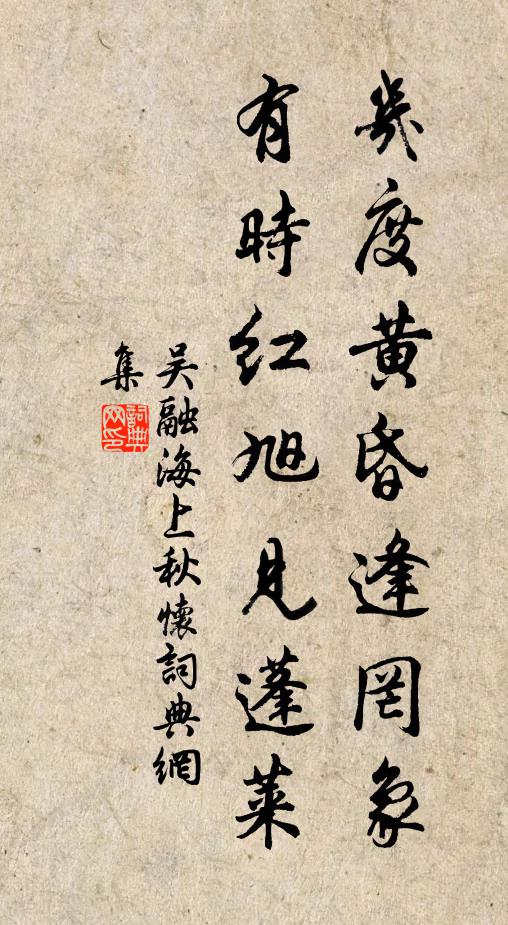 幾度黃昏逢罔象
有時紅旭見蓬萊
吳融海上秋懷詞典網
集
詞典
网印